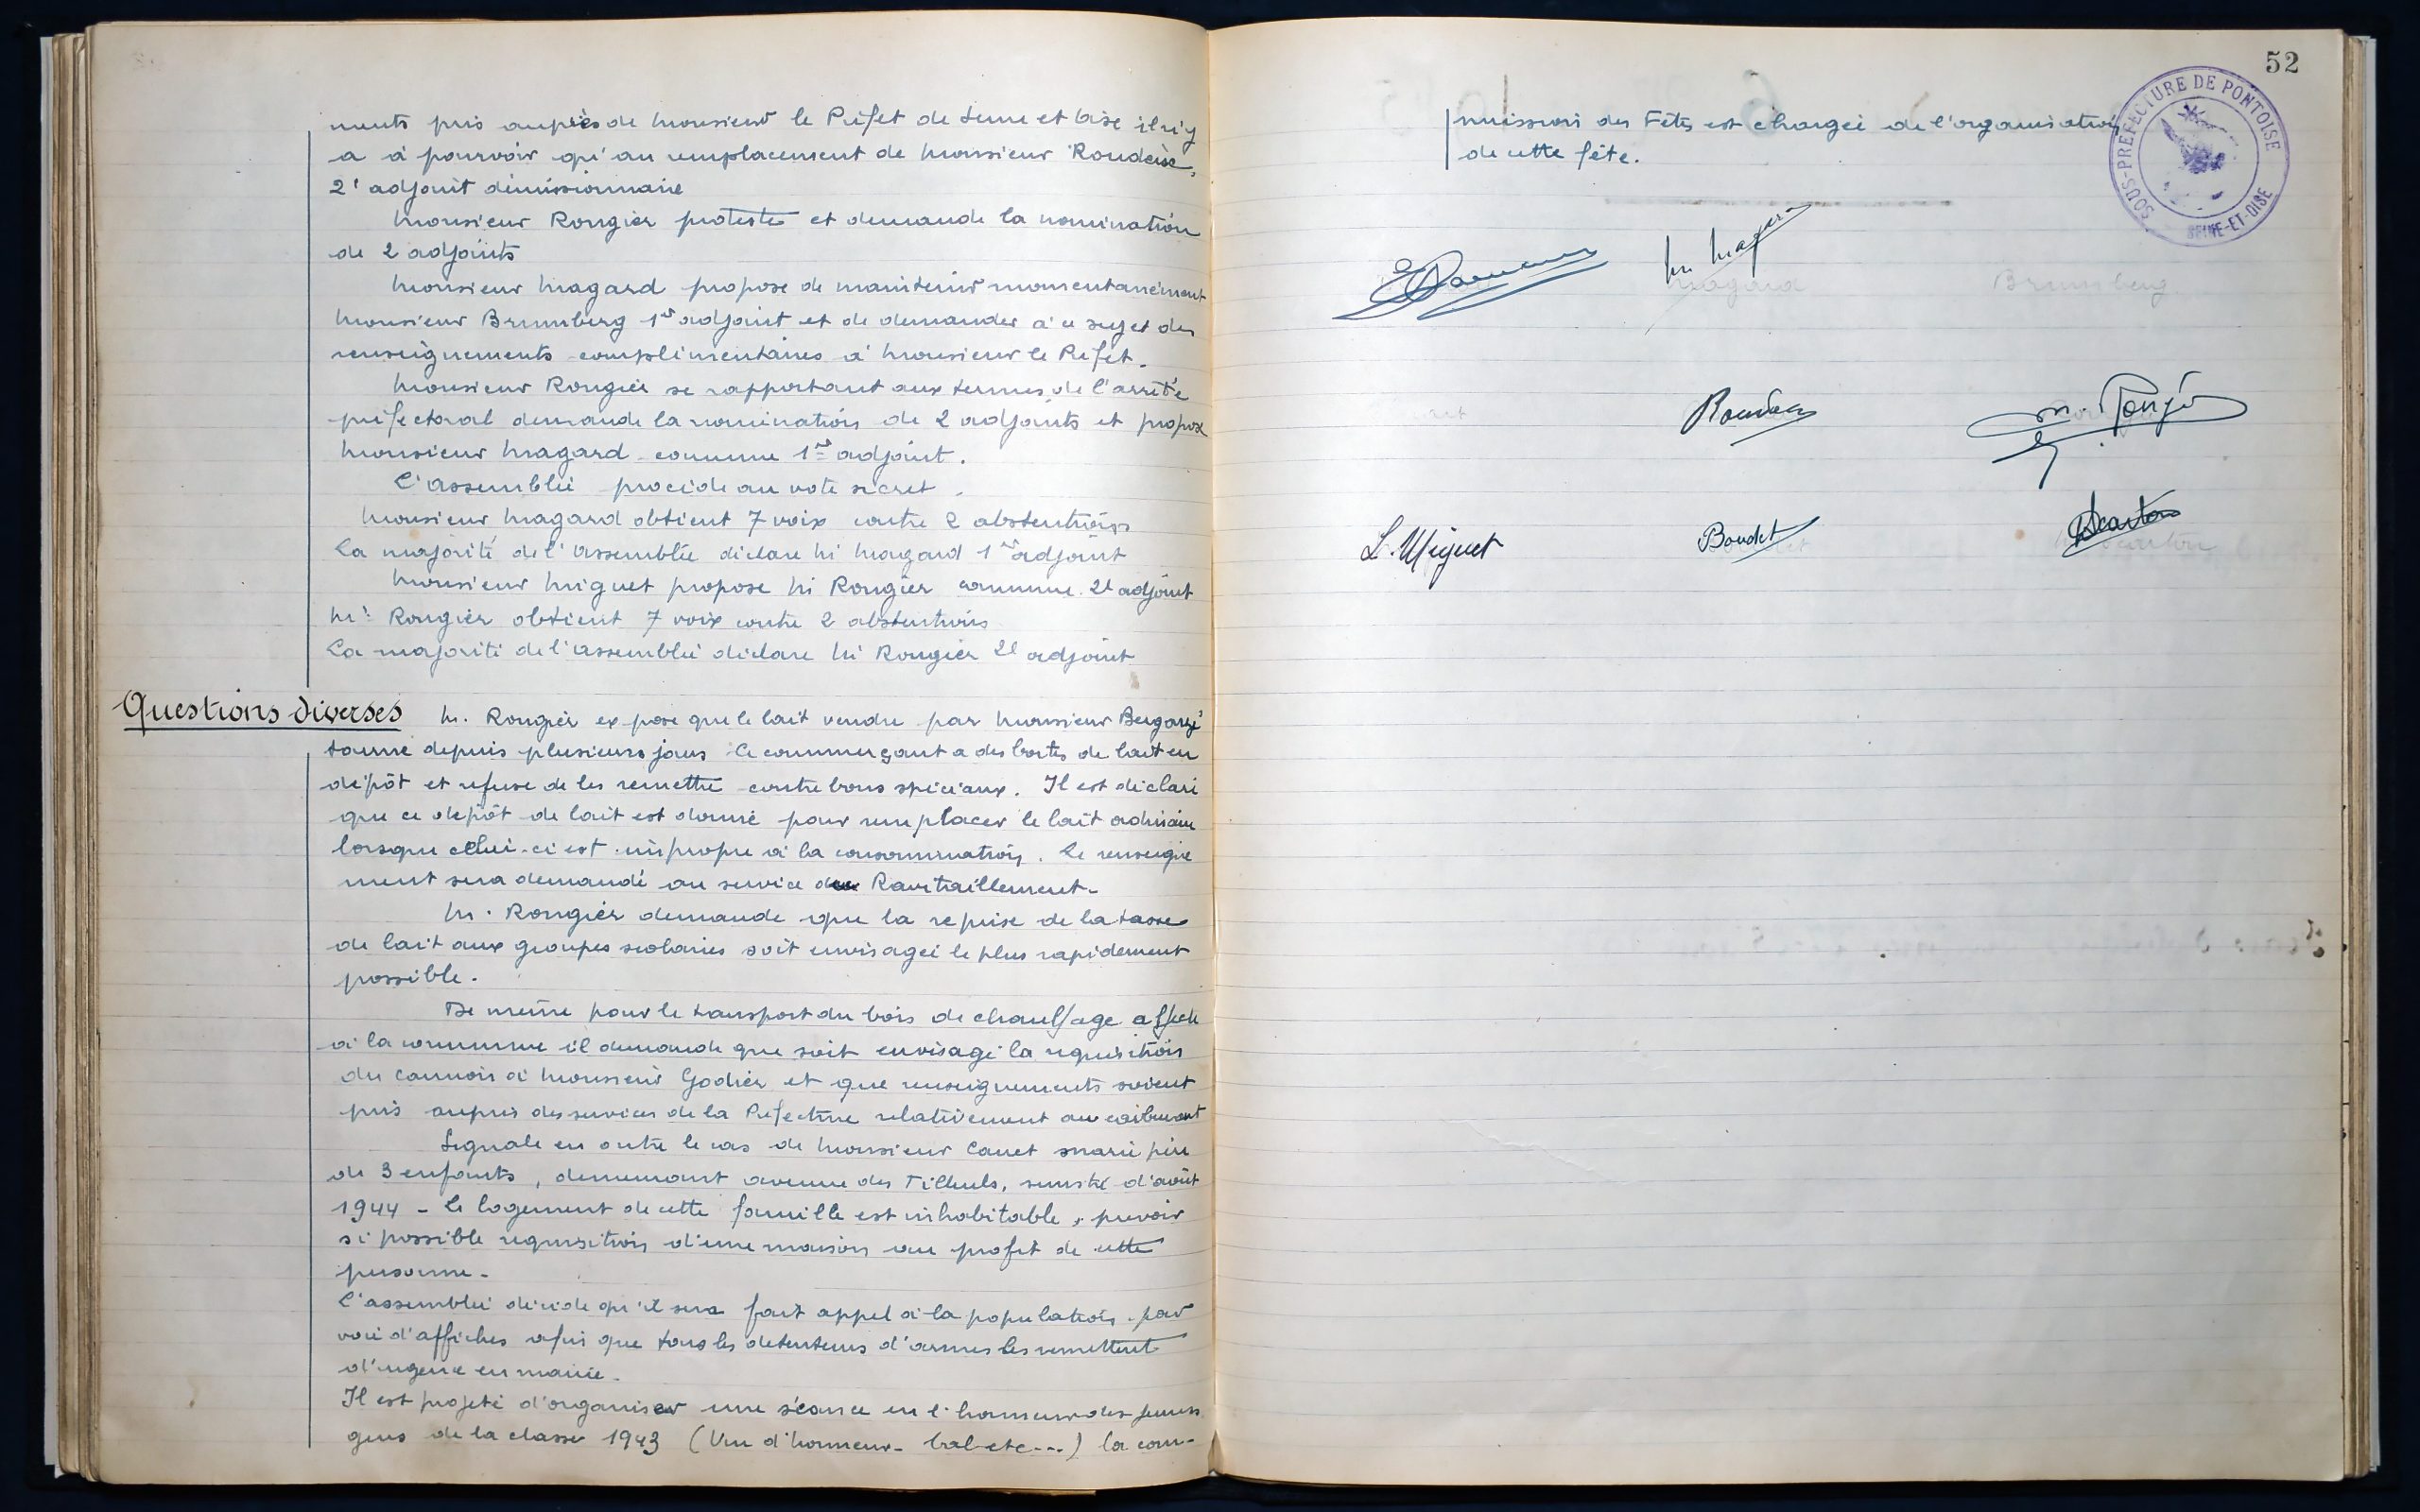 ments pris auprès de Monsieur le Préfet de Seine et Oise il n'y
a à pourvoir qu'au remplacement de Monsieur
2e adjoint démissionnaire
Monsieur Rougier proteste et demande la nomination
de 2 adjoints
Monsieur Magard propose de maintenir momentanément
Monsieur Brumberg 1er adjoint et de demander à ce sujet des
renseignements complémentaires à Monsieur le Préfet.
Monsieur Rougier se rapportant aux termes de l'arrêté
préfectoral demande la nomination de 2 adjoints et propose
Monsieur Magard comme 1er adjoint.
L'assemblée procède au vote secret.
Monsieur Magard obtient 7 voix contre 2 abstentions
La majorité de l'assemblée déclare M Magard 1er adjoint
Monsieur Miguet propose M Rougier comme 2e adjoint
Mr Rougier obtient 7 voix contre 2 abstentions
La majorité de l'assemblée déclare M Rougier 2e adjoint
Questions diverses
M. Rougier expose que le lait vendu par Monsieur
tourne depuis plusieurs jours ce commerçant a des boites de lait en
dépôt et refuse de les remettre contre bons spéciaux. Il est déclaré
que ce dépôt de lait est donné pour remplacer le lait
lorsque celui-ci est impropre à la consommation. Le renseigne
ment sera demandé au service du Ravitaillement-
M. Rougier demande que la reprise de la tasse
de lait aux groupes scolaires soit envisagée le plus rapidement
possible.
De même pour le transport du bois de chauffage affecté
à la commune il demande que soit envisagé la réquisition
du camion à Monsieur Godier et que renseignements soient
pris auprès des services de la Préfecture relativement au carburant
Signale en outre le cas de Monsieur Canet marié père
de 3 enfants, demeurant avenue des Tilleuls, sinistré d'août
1944 - Le logement de cette famille est inhabitable, prévoir
si possible réquisition d'une maison au profit de cette
personne-
L'assemblée décide qu'il sera fait appel à la population par
voie d'affiches afin que tous les détenteurs d'armes les remettent
d'urgence en mairie-
Il est projeté d'organiser une séance en l'honneur des jeunes
gens de la classe 1943 (Vin d'honneur- bal-etc---) la com-
52
mission des Fêtes est chargée de l'organisation
de cette fête.
SOUS-PREFECTURE DE PONTOISE
SEINE-ET-OISE
M Magard
Brumberg
M. Rougier
L. Miguet
Boudet